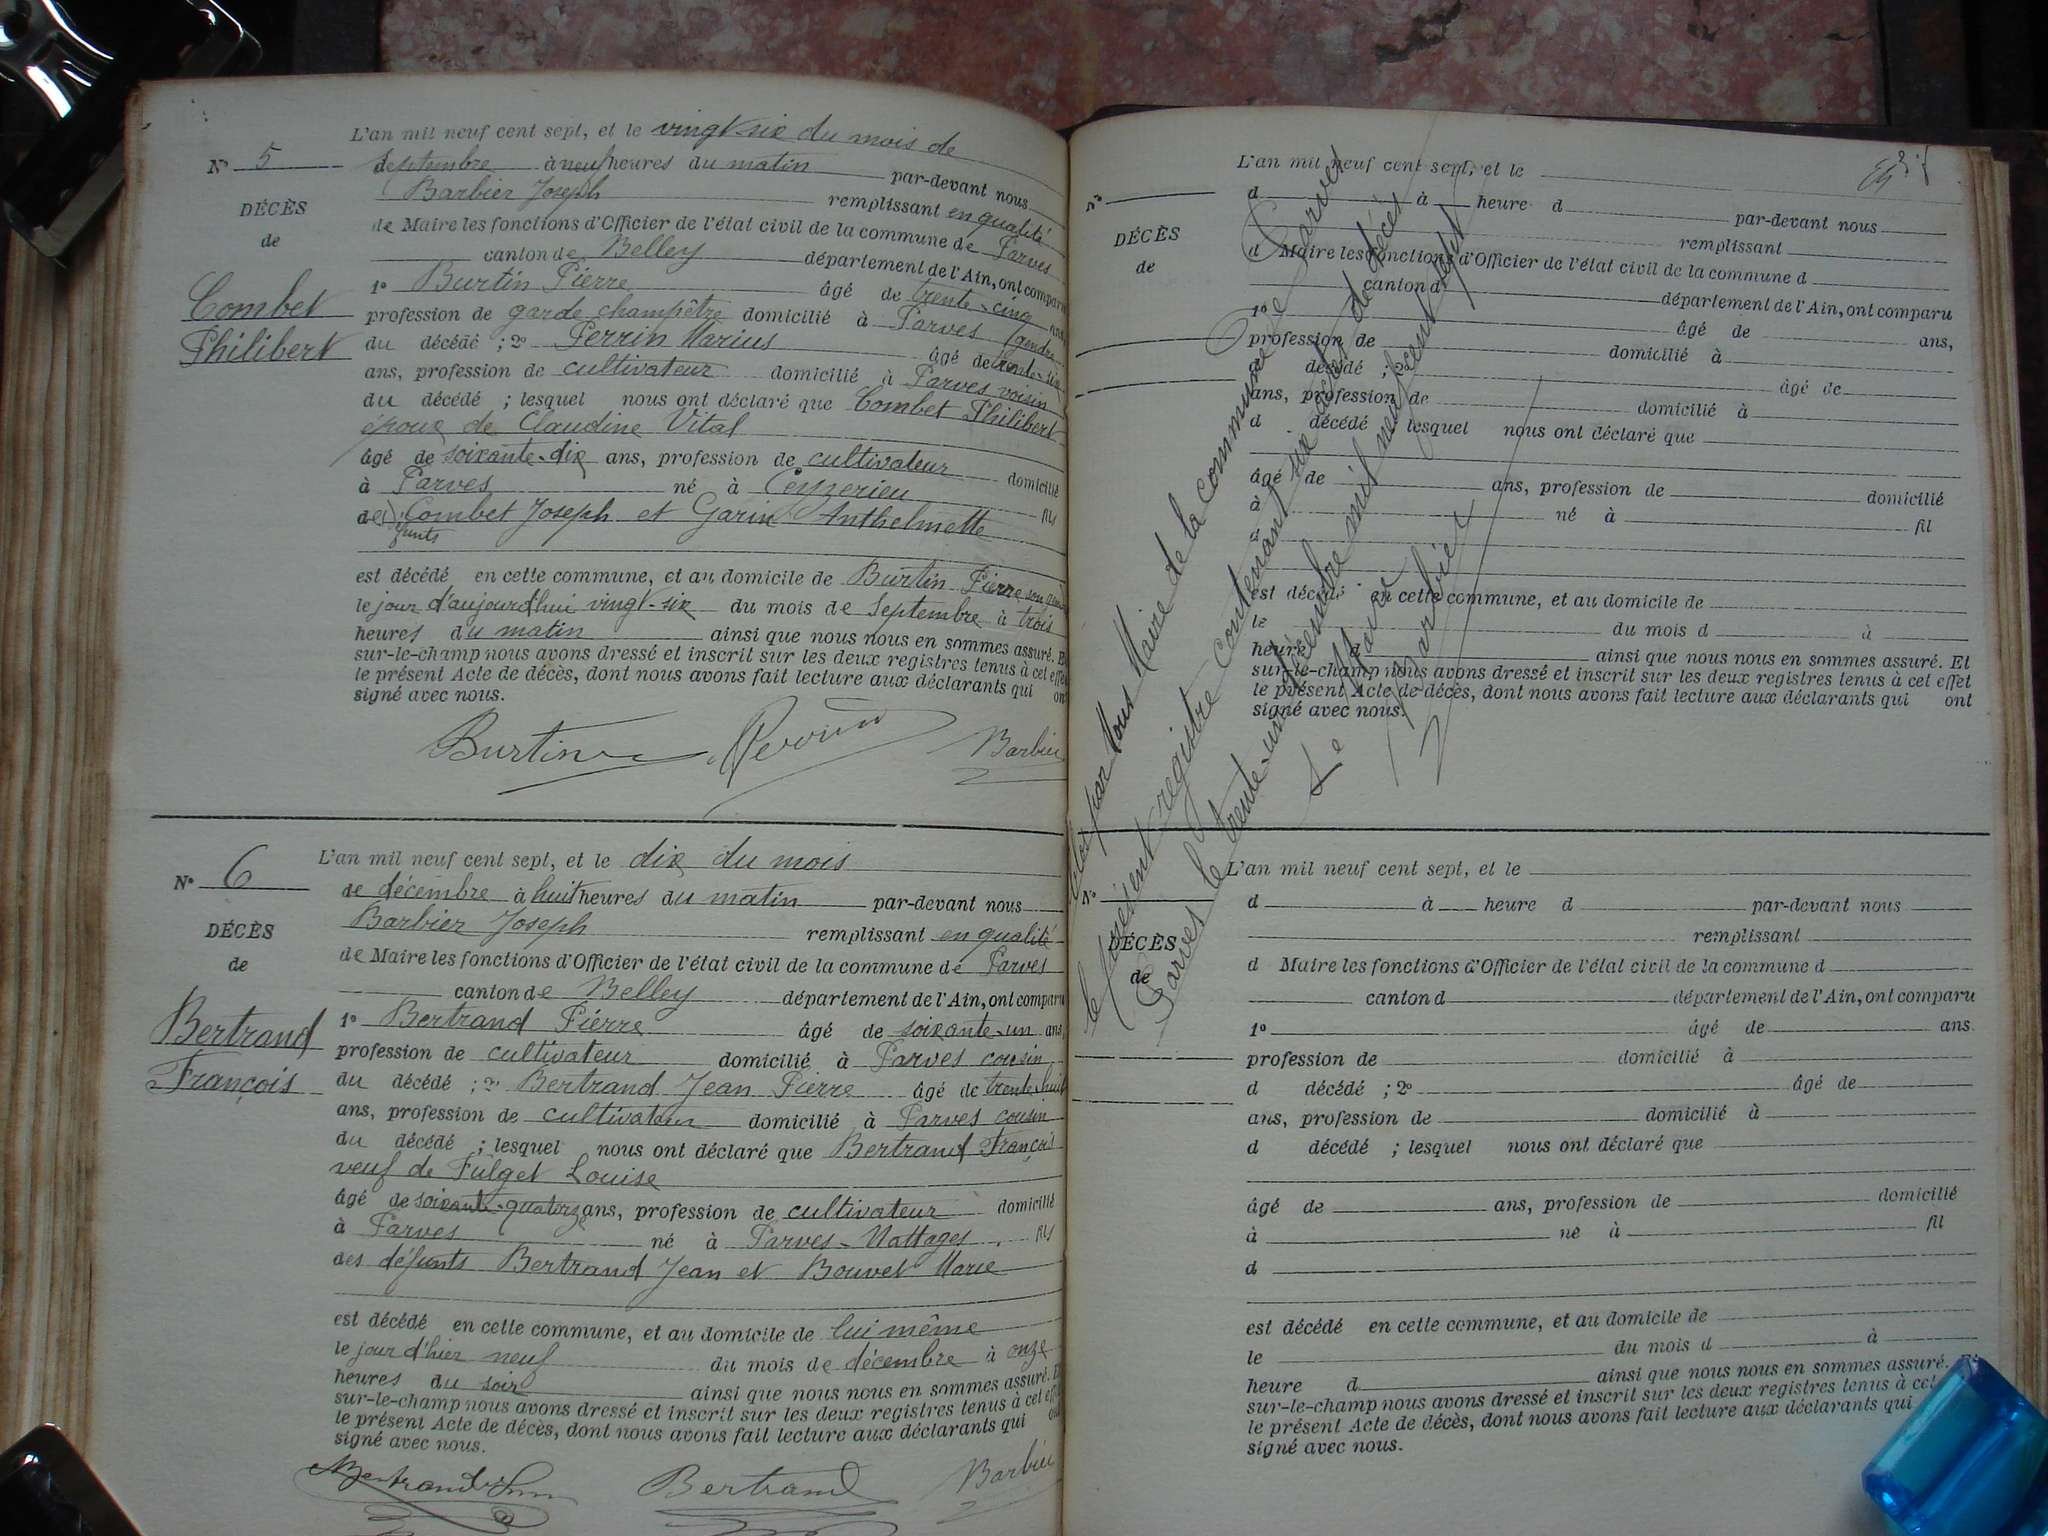 L'an mil neuf cent sept, et le vingt-six du mois de
N° 5
septembre à neuf heures du matin par-devant nous
Barbier Joseph remplissant en qualité
DÉCÈS
de Maire les fonctions d'Officier de l'état civil de la commune de Parves
de
canton de Belley département de l'Ain, ont comparu
Combet
Philibert
1° Burtin Pierre âgé de trente-cinq ans
profession de garde champêtre domicilié à Parves (gendre
du décédé ; 2° Perrin Marius âgé de trente-six
ans, profession de cultivateur domicilié à Parves voisin
du décédé ; lesquel nous ont déclaré que Combet Philibert
époux de Claudine Vital
âgé de soixante-dix ans, profession de cultivateur domicilié
à Parves né à Ceyzerieu fils
de Combet Joseph et Garin Anthelmette
funts
est décédé en cette commune, et au domicile de Burtin Pierre son
le jour d'aujourd'hui vingt-six du mois de Septembre à trois
heures du matin ainsi que nous nous en sommes assuré. Et
sur-le-champ nous avons dressé et inscrit sur les deux registres tenus à cet effet
le présent Acte de décès, dont nous avons fait lecture aux déclarants qui ont
signé avec nous.
Burtin Perrin Barbier
N° 6
L'an mil neuf cent sept, et le dix du mois
de décembre à huit heures du matin par-devant nous
Barbier Joseph remplissant en qualité
DÉCÈS
de Maire les fonctions d'Officier de l'état civil de la commune de Parves
de
canton de Belley département de l'Ain, ont comparu
Bertrand
François
1° Bertrand Pierre âgé de soixante-un ans
profession de cultivateur domicilié à Parves cousin
du décédé ; 2° Bertrand Jean Pierre âgé de trente-huit
ans, profession de cultivateur domicilié à Parves cousin
du décédé ; lesquel nous ont déclaré que Bertrand François
veuf de Fulget Louise
âgé de soixante-quatorze ans, profession de cultivateur domicilié
à Parves né à Parves-Nattages fils
des défunts Bertrand Jean et Bouvet Marie
est décédé en cette commune, et au domicile de lui même
le jour d'hier neuf du mois de décembre à onze
heures du soir ainsi que nous nous en sommes assuré. Et
sur-le-champ nous avons dressé et inscrit sur les deux registres tenus à cet effet
le présent Acte de décès, dont nous avons fait lecture aux déclarants qui ont
signé avec nous.
Bertrand Bertrand Barbier
L'an mil neuf cent sept, et le
N°
d à heure d par-devant nous
remplissant
DÉCÈS
d Maire les fonctions d'Officier de l'état civil de la commune d
de
canton d département de l'Ain, ont comparu
1° âgé de ans,
profession de domicilié à
d décédé ; 2° âgé de
ans, profession de domicilié à
d décédé lesquel nous ont déclaré que
âgé de ans, profession de domicilié
à né à fil
d
est décédé en cette commune, et au domicile de
le du mois d à
heure d ainsi que nous nous en sommes assuré. Et
sur-le-champ nous avons dressé et inscrit sur les deux registres tenus à cet effet
le présent Acte de décès, dont nous avons fait lecture aux déclarants qui ont
signé avec nous.
Clos par Nous Maire de la commune de Parves
le présent registre contenant six actes de décès
Parves le trente-un décembre mil neuf cent sept
Le Maire
Barbier
L'an mil neuf cent sept, et le
N°
d à heure d par-devant nous
remplissant
DÉCÈS
d Maire les fonctions d'Officier de l'état civil de la commune d
de
canton d département de l'Ain, ont comparu
1° âgé de ans
profession de domicilié à
d décédé ; 2° âgé de
ans, profession de domicilié à
d décédé ; lesquel nous ont déclaré que
âgé de ans, profession de domicilié
à né à fil
d
est décédé en cette commune, et au domicile de
le du mois d à
heure d ainsi que nous nous en sommes assuré. Et
sur-le-champ nous avons dressé et inscrit sur les deux registres tenus à cet
le présent Acte de décès, dont nous avons fait lecture aux déclarants qui
signé avec nous.